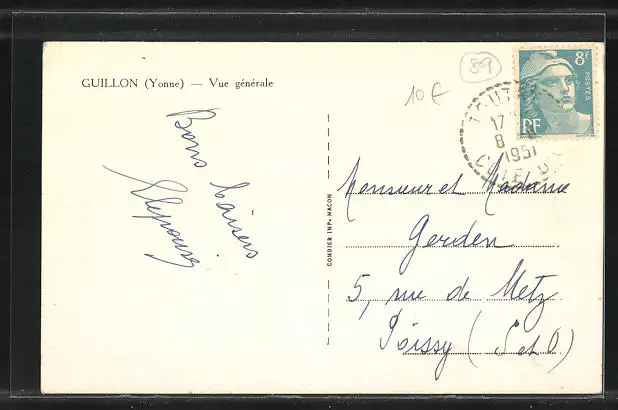 GUILLON (Yonne) — Vue générale
89
10 €
8F
POSTES
RF
17
8
1951
Bons baisers
COMBIER IMP. MACON
Monsieur et Madame
Gerden
5, rue de Metz
Poissy (S et O)